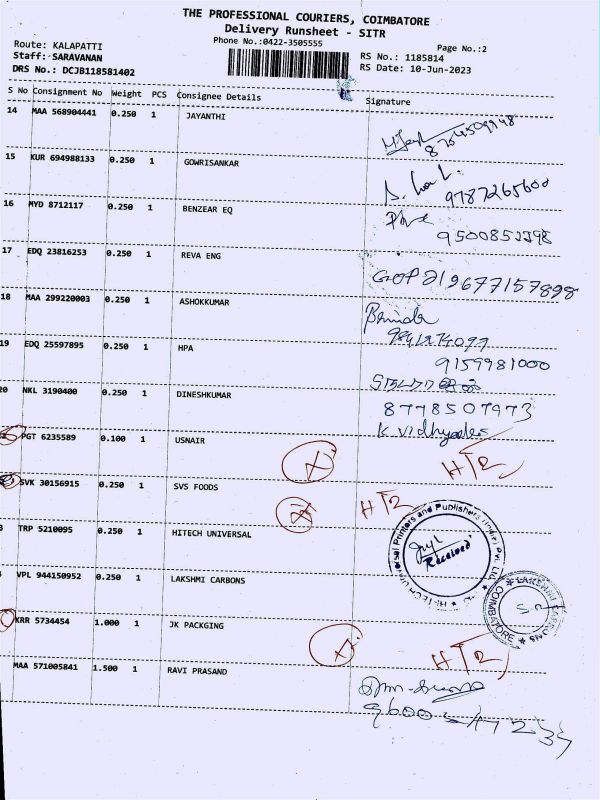 THE PROFESSIONAL COURIERS, COIMBATORE
Delivery Runsheet - SITR
Phone No.:0422-3505555
Page No.:2
Route: KALAPATTI
Staff: SARAVANAN
DRS No.: DCJB118581402
RS No.: 1185814
RS Date: 10-Jun-2023
S No Consignment No Weight PCS Consignee Details Signature
14 MAA 568904441 0.250 1 JAYANTHI
15 KUR 694988133 0.250 1 GOWRISANKAR
9787265600
16 MYD 8712117 0.250 1 BENZEAR EQ
17 EDQ 23816253 0.250 1 REVA ENG
9677157898
18 MAA 299220003 0.250 1 ASHOKKUMAR
19 EDQ 25597895 0.250 1 HPA
9159981000
20 NKL 3190400 0.250 1 DINESHKUMAR
8778507973
K Vidhya
PGT 6235589 0.100 1 USNAIR
SVK 30156915 0.250 1 SVS FOODS
TRP 5210095 0.250 1 HITECH UNIVERSAL
Universal Printers and Publishers (India) Pvt. Ltd.
Received
VPL 944150952 0.250 1 LAKSHMI CARBONS
LAKSHMI CARBONS
COIMBATORE
KRR 5734454 1.000 1 JK PACKGING
MAA 571005841 1.500 1 RAVI PRASAND